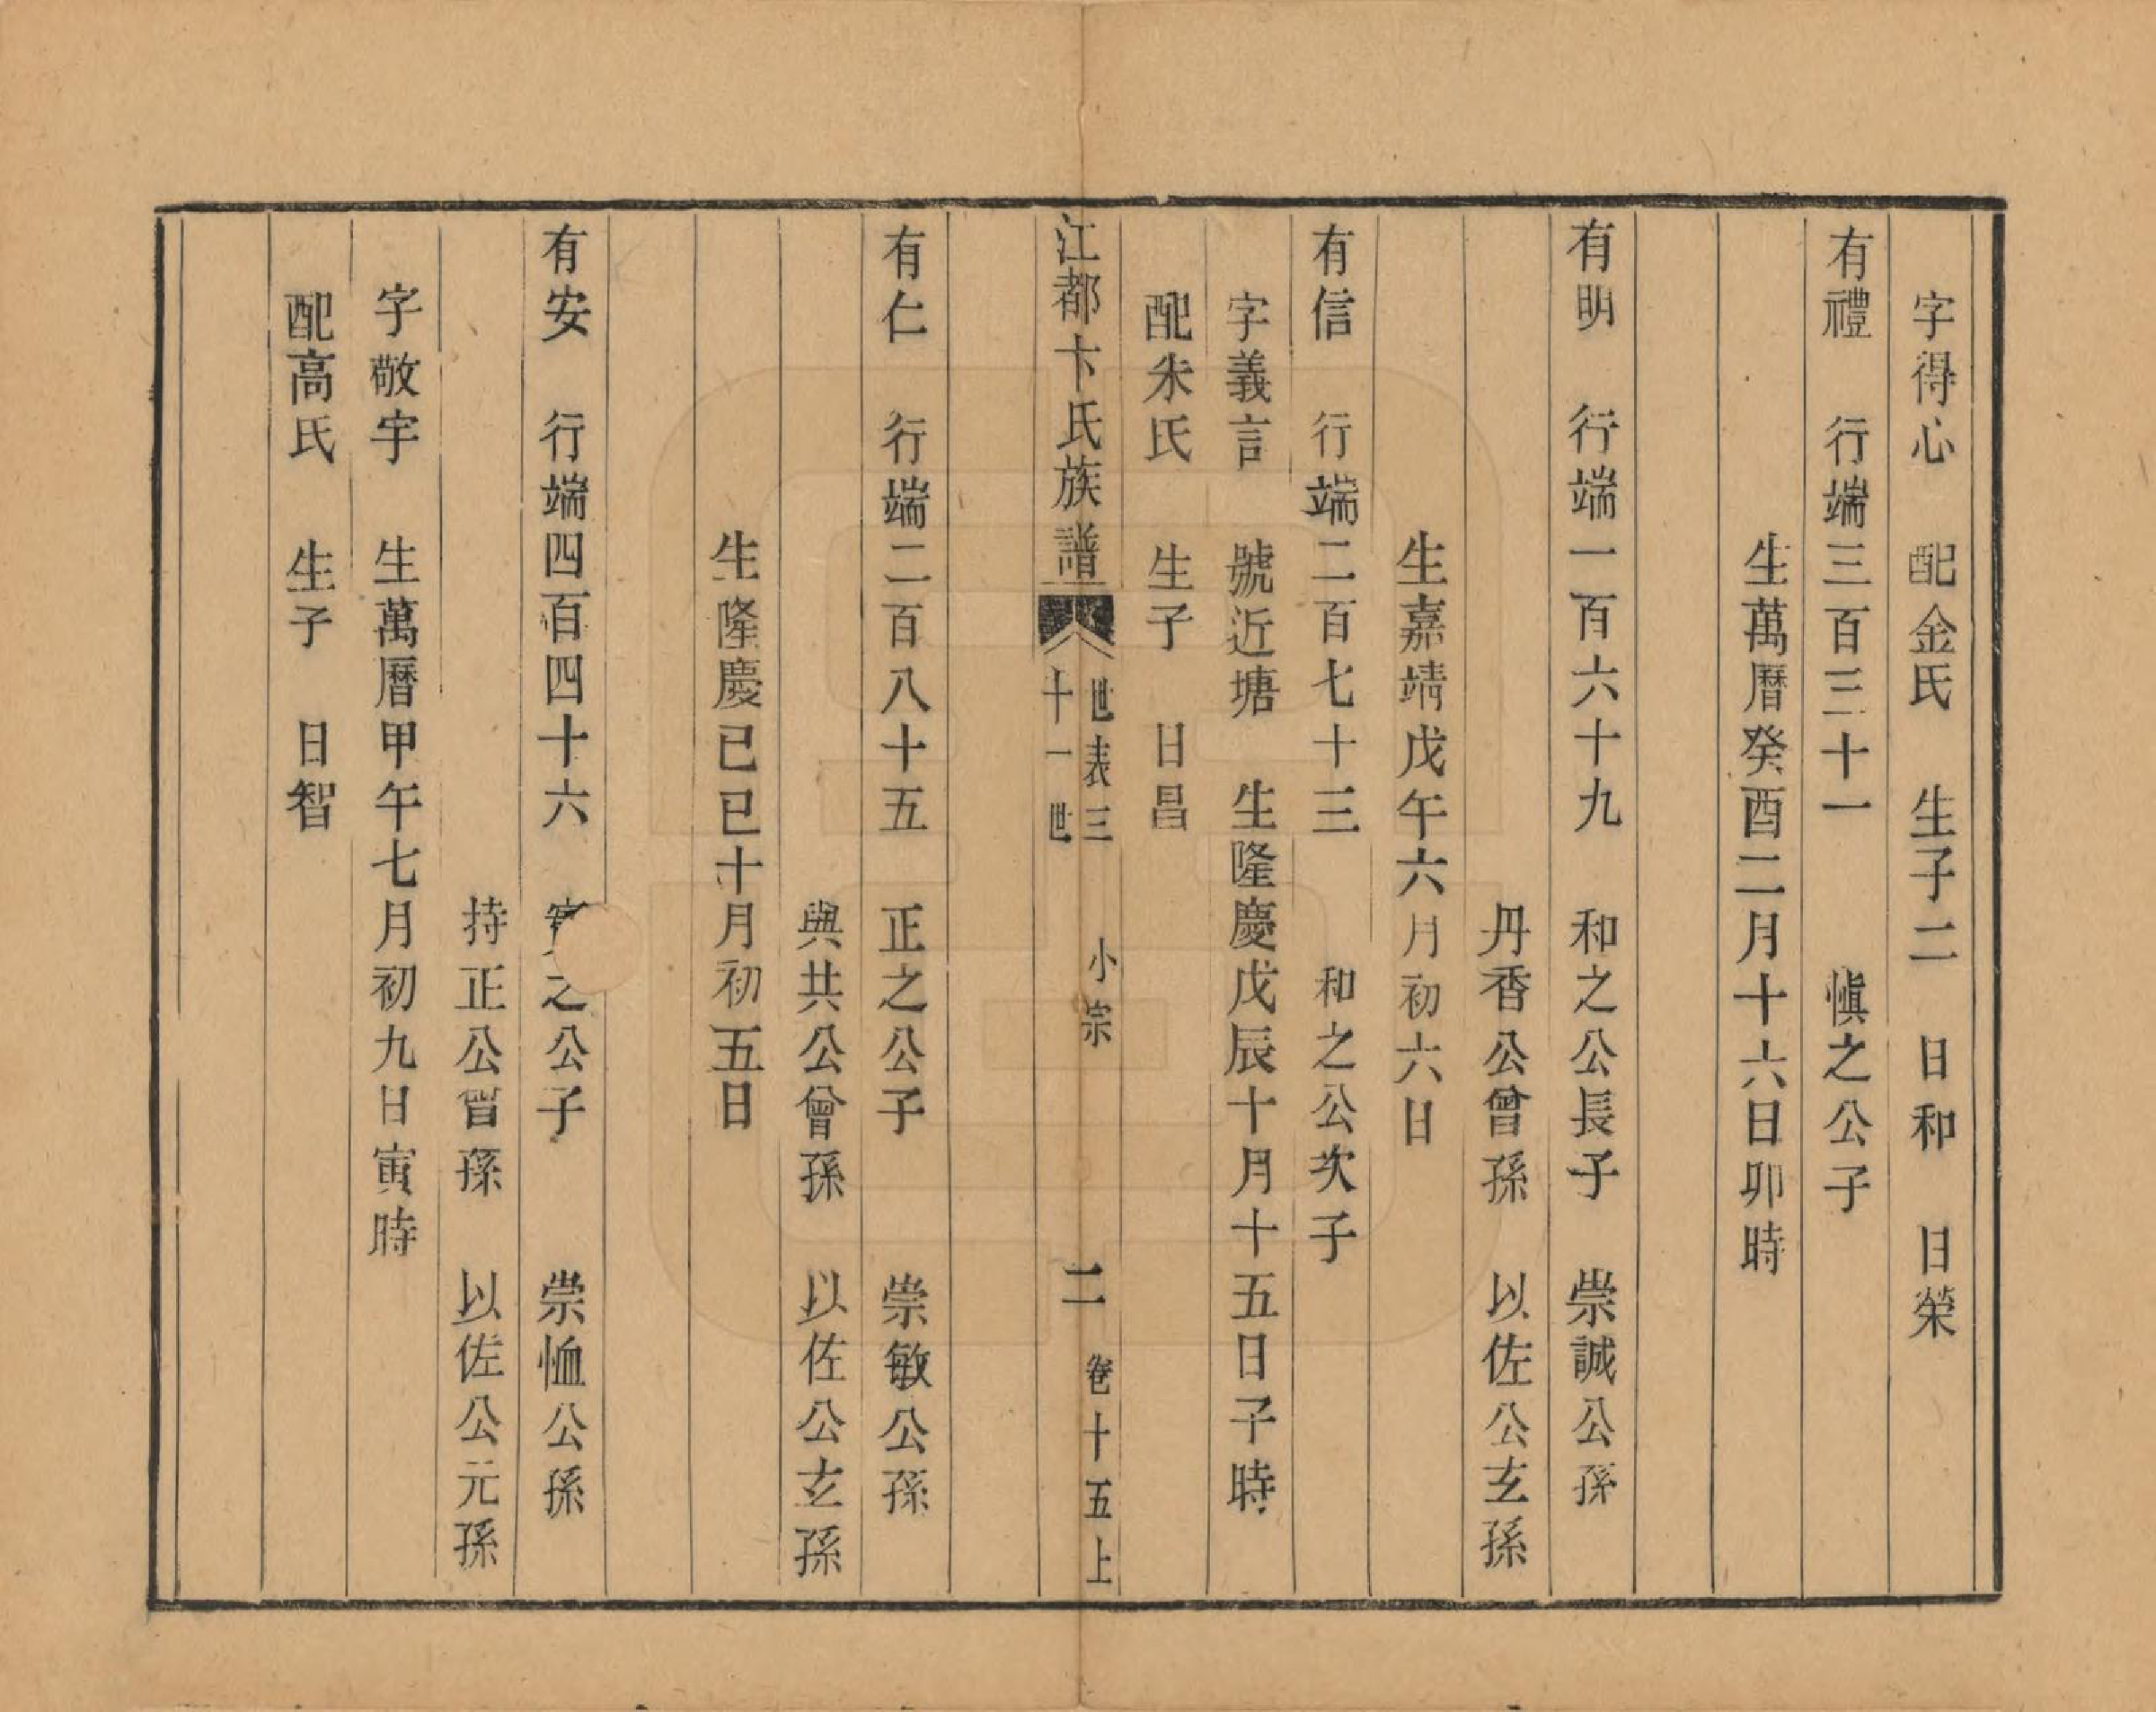 字得心　配金氏　生子二　日和　日榮
有禮　行端三百三十一　愼之公子
生萬曆癸酉二月十六日卯時
有明　行端一百六十九　和之公長子　崇誠公孫
丹香公曾孫　以佐公玄孫
生嘉靖戊午六月初六日
有信　行端二百七十三　和之公次子
字義言　號近塘　生隆慶戊辰十月十五日子時
配朱氏　生子　日昌
江都卞氏族譜
世表三　小宗　卷十五上
十一世　二
有仁　行端二百八十五　正之公子　崇敏公孫
與共公曾孫　以佐公玄孫
生隆慶己巳十月初五日
有安　行端四百四十六　之公子　崇恤公孫
持正公曾孫　以佐公元孫
字敬宇　生萬曆甲午七月初九日寅時
配高氏　生子　日智